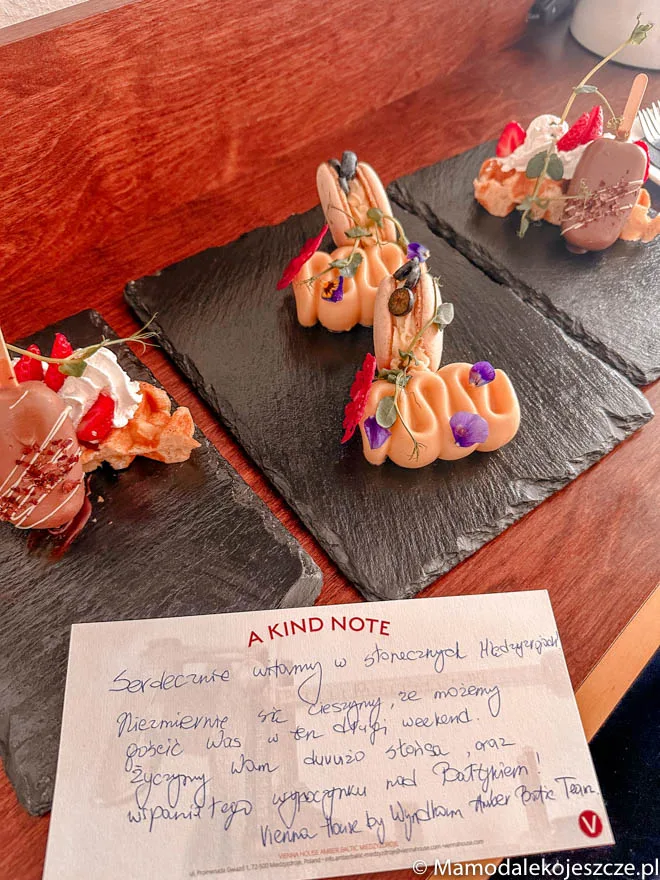 A KIND NOTE
Serdecznie witamy w słonecznych Międzyzdrojach
Niezmiernie się cieszymy, że możemy
gościć Was w ten długi weekend.
Życzymy Wam duuużo słońca, oraz
wspaniałego wypoczynku nad Bałtykiem!
Vienna House by Wyndham Amber Baltic Team
VIENNA HOUSE AMBER BALTIC MIEDZYZDROJE
ul. Promenada Gwiazd 1, 72-500 Miedzyzdroje, Poland - info.amberbaltic.miedzyzdroje@viennahouse.com
V
© Mamodalekojeszcze.pl